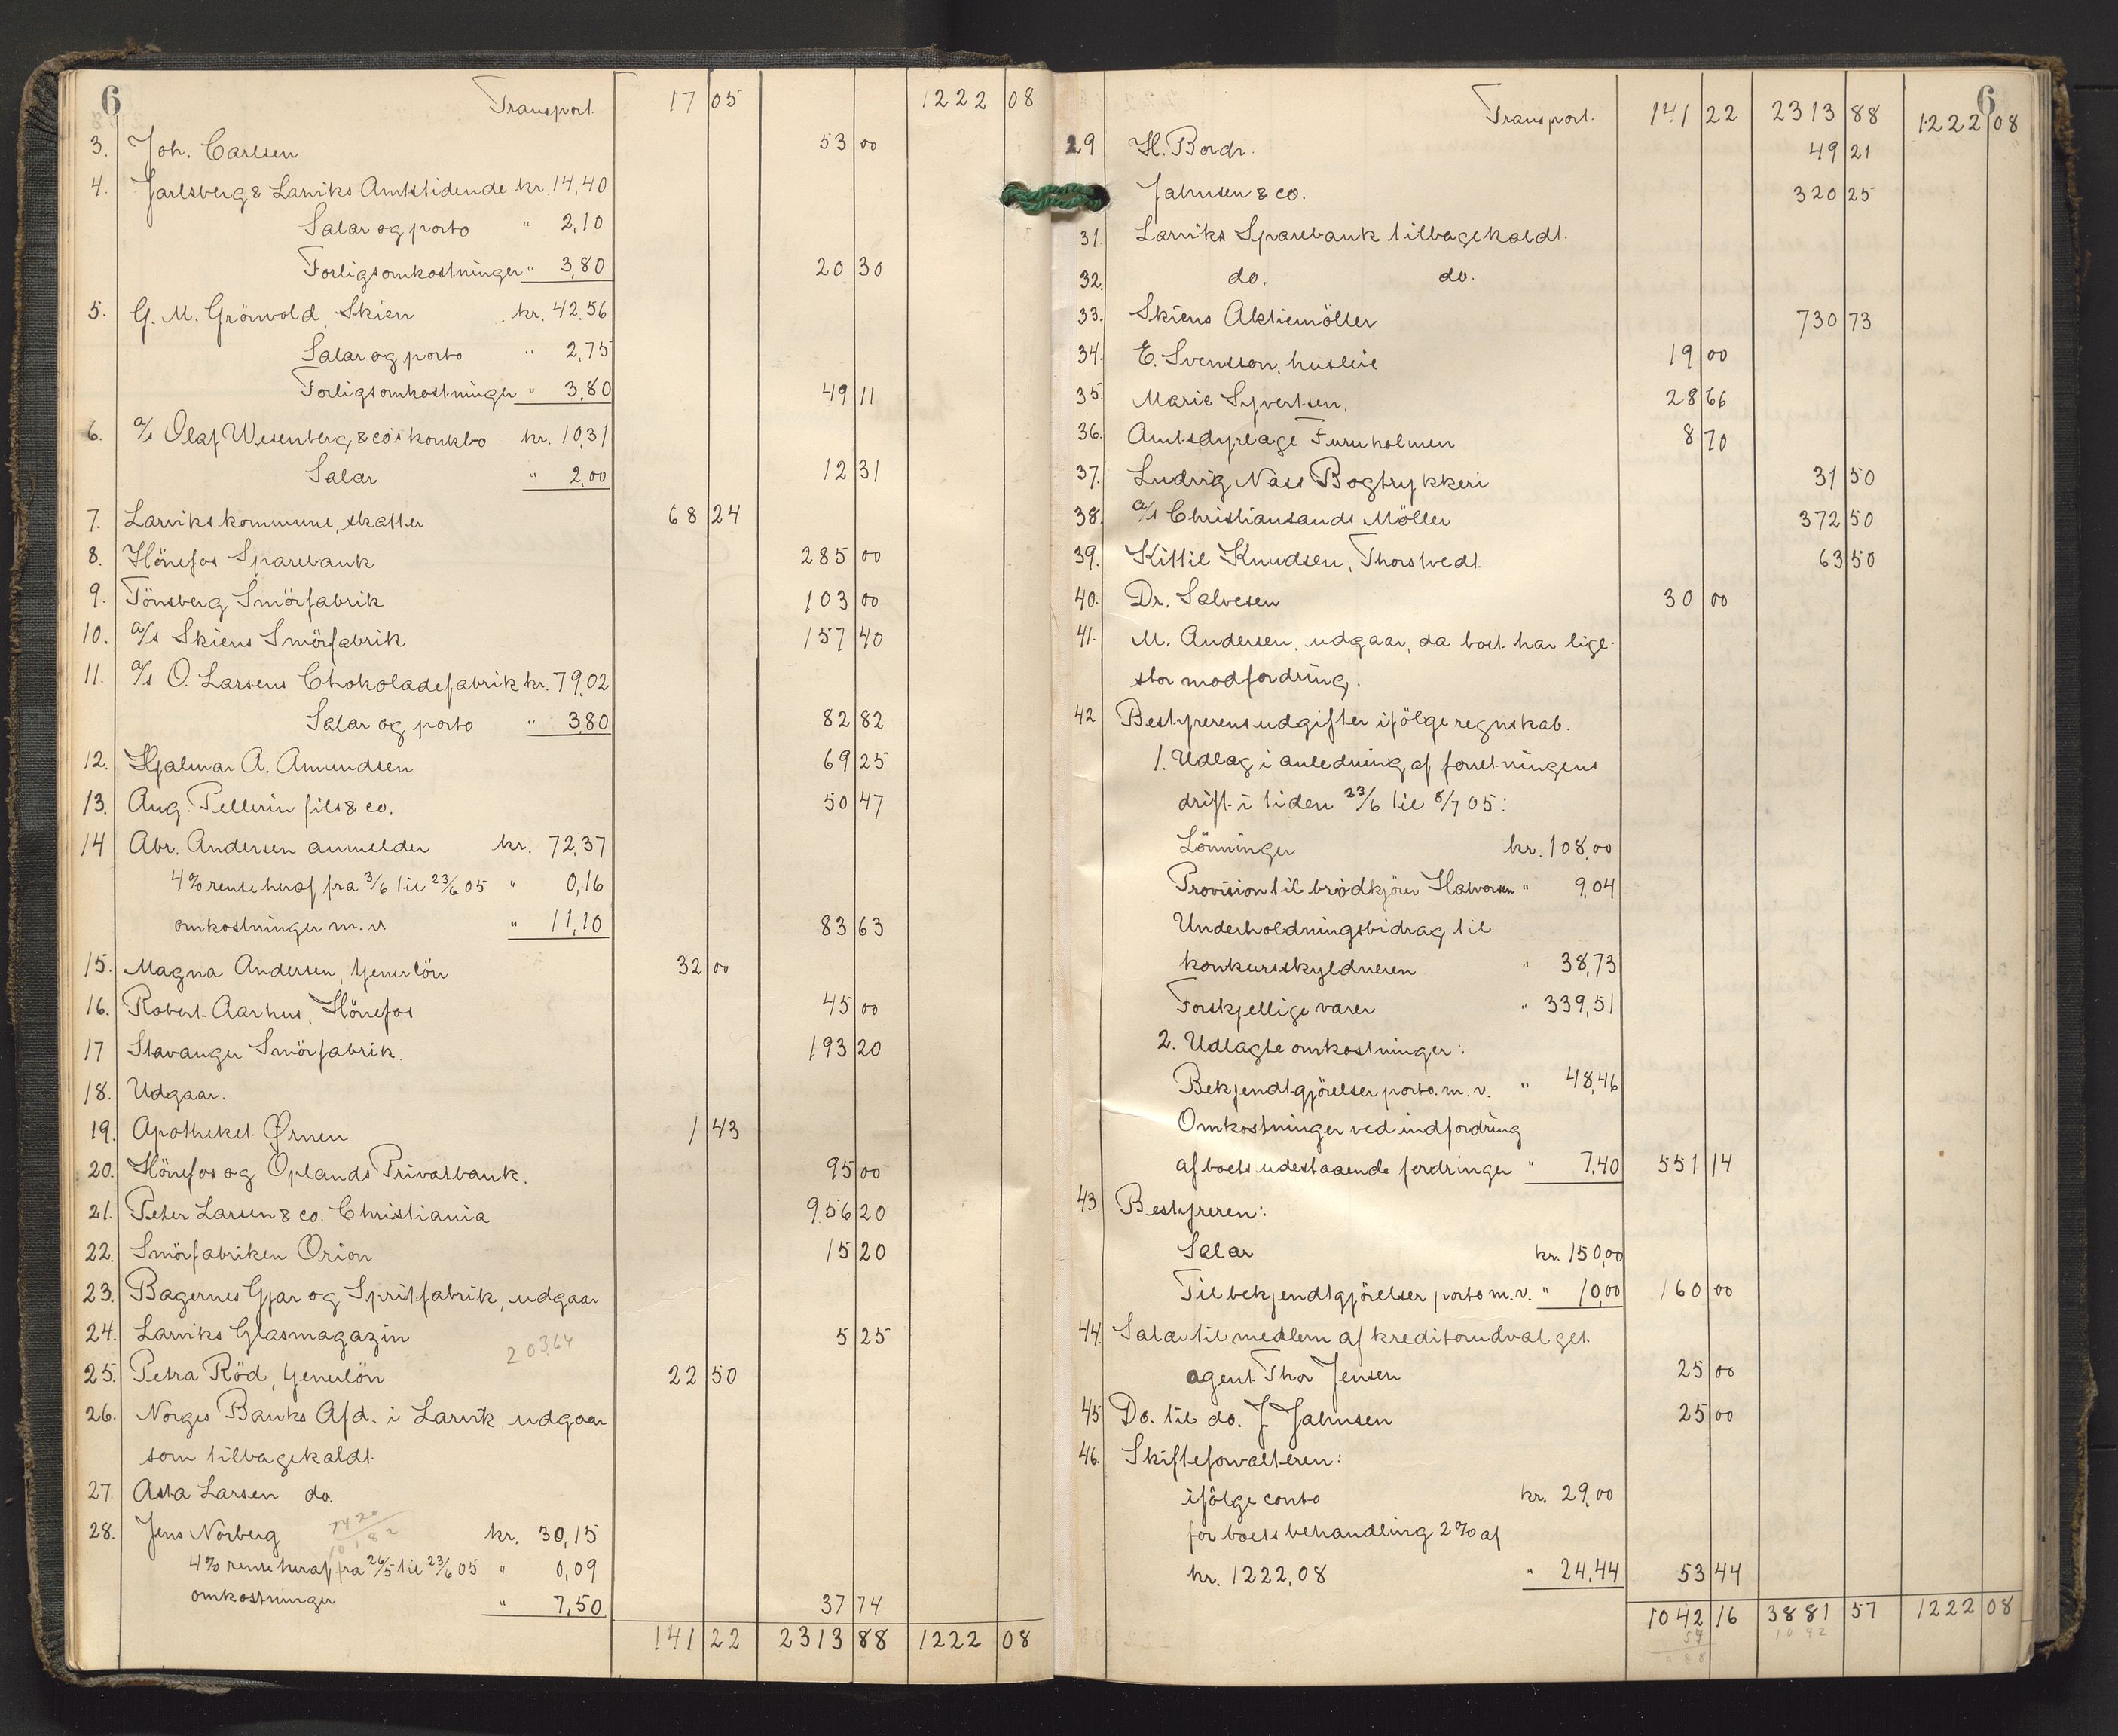 6
Transport. 17 05 1222 08
3. Joh. Carlsen 53 00
4. Jarlsberg & Larviks Amtstidende kr. 14,40
Salar og porto " 2,10
Forligsomkostninger " 3,80 20 30
5. G. M. Grönvold Skien kr. 42,56
Salar og porto " 2,75
Forligsomkostninger " 3,80 49 11
6. a/s Olaf Wesenberg & co's konkbo kr. 10,31
Salar " 2,00 12 31
7. Larviks kommune, skatter 68 24
8. Hönefos Sparebank 285 00
9. Tönsberg Smörfabrik 103 00
10. a/s Skiens Smörfabrik 157 40
11. a/s O. Larsens Chokoladefabrik kr. 79,02
Salar og porto " 3,80 82 82
12. Hjalmar A. Amundsen 69 25
13. Aug. Pellerin fils & co. 50 47
14 Abr. Andersen anmelder kr. 72,37
4% rente heraf fra 3/6 til 23/6 05 " 0,16
omkostninger m. v. " 11,10 83 63
15. Magna Andersen, tjenerlön 32 00
16. Robert Aarhus, Hönefos 45 00
17 Stavanger Smörfabrik. 193 20
18. Udgaar.
19. Apotheket Ørnen 1 43
20. Hönefos og Oplands Privatbank. 95 00
21. Peter Larsen & co. Christiania 956 20
22. Smörfabriken Orion 15 20
23. Bagernes Gjær og Spritfabrik, udgaar
24. Larviks Glasmagazin 5 25
20364
25. Petra Röd, tjenerlön 22 50
26. Norges Banks Afd. i Larvik udgaar
som tilbagekaldt.
27. Asta Larsen do.
28. Jens Norberg kr. 30,15
4% rente heraf fra 26/5 til 23/6 05 " 0,09
omkostninger " 7,50 37 74
141 22 2313 88 1222 08
6
Transport. 141 22 2313 88 1222 08
29 H. Bordr. 49 21
Jahnsen & co. 320 25
31. Larviks Sparebank tilbagekaldt.
32. do. do.
33. Skiens Aktiemöller 730 73
34. E. Svensson, husleie 19 00
35. Marie Syvertsen. 28 66
36. Amtsdyrlæge Furuholmen 8 70
37. Ludvig Næss Bogtrykkeri 31 50
38. a/s Christiansands Möller 372 50
39. Kittil Knudsen, Thorstvedt. 63 50
40. Dr. Salvesen 30 00
41. M. Andersen, udgaar, da boet har lige-
stor modfordring.
42 Bestyrerens udgifter ifölge regnskab.
1. Udlæg i anledning af forretningens
drift i tiden 23/6 til 8/7 05:
Lönninger kr. 108,00
Provision til brödkjörer Halvorsen " 9,04
Underholdningsbidrag til
konkursskyldneren " 38,73
Forskjellige varer " 339,51
2. Udlagte omkostninger:
Bekjendtgjörelser porto. m. v. " 48,46
Omkostninger ved indfordring
af boets udestaaende fordringer " 7,40 551 14
43. Bestyreren:
Salar kr. 150,00
Til bekjendtgjörelser porto m. v. " 10,00 160 00
44. Salar til medlem af kreditorudvalget.
agent Thor Jensen 25 00
45 Do. til do. J. Jahnsen 25 00
46. Skifteforvalteren:
ifölge conto kr. 29,00
for boets behandling 2% af
kr. 1222,08 " 24,44 53 44
1042 16 3881 57 1222 08
1042